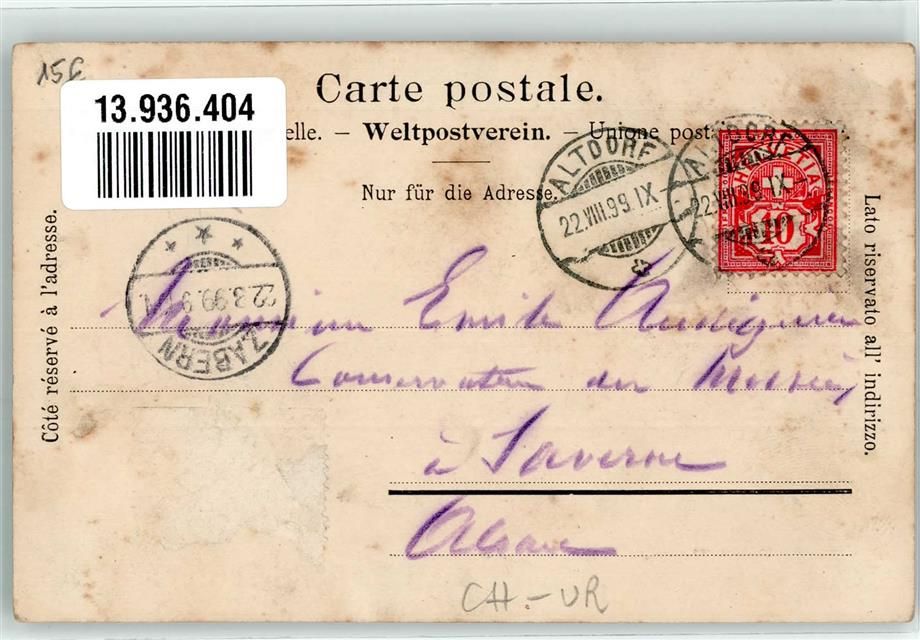 15€
13.936.404
Carte postale.
elle. – Weltpostverein. – Unione post
Nur für die Adresse.
ALTDORF
22.VIII.99.IX
ALTDORF
22.VIII.99.IX
HELVETIA
10
Côté réservé à l'adresse.
Lato riservato all' indirizzo.
ZABERN
Monsieur Emile
Conservateur des Musées,
à Saverne
Alsace
CH-UR